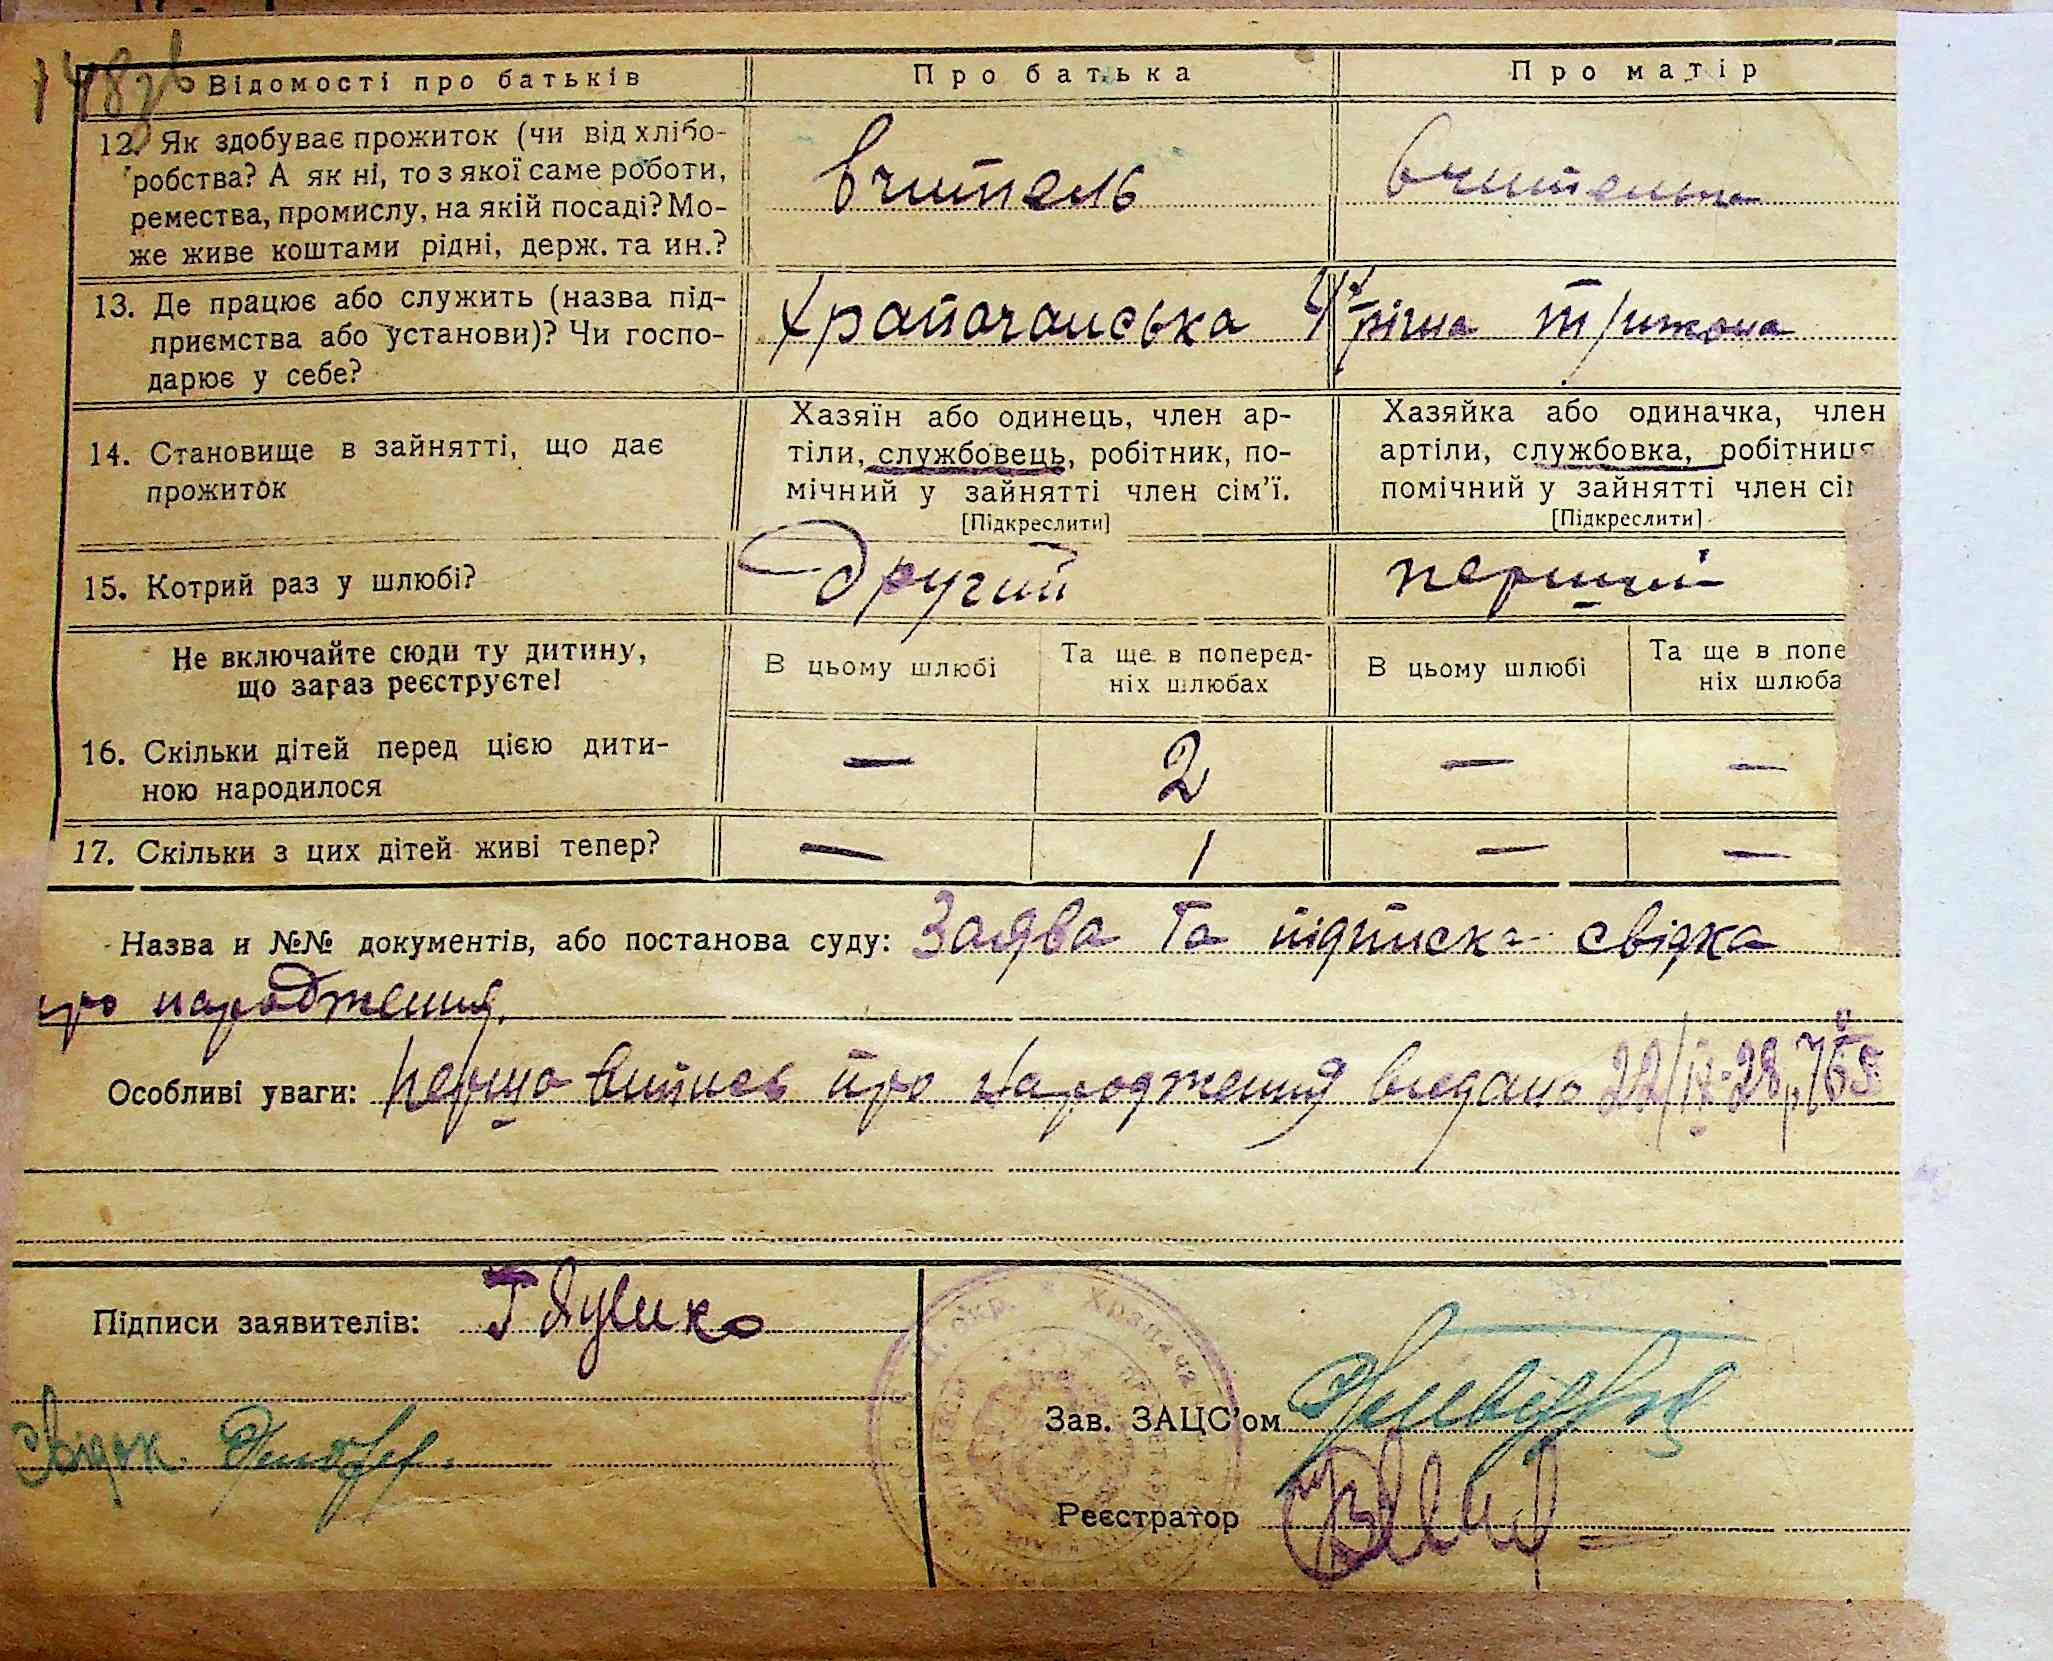 148зв
Відомості про батьків
Про батька
Про матір
12. Як здобуває прожиток (чи від хлібо-
робства? А як ні, то з якої саме роботи,
ремества, промислу, на якій посаді? Мо-
же живе коштами рідні, держ. та ин.?
вчитель
вчителька
13. Де працює або служить (назва під-
приємства або установи)? Чи госпо-
дарює у себе?
Храпачанська 4х річна т/шкона
14. Становище в зайнятті, що дає
прожиток
Хазяїн або одинець, член ар-
тіли, службовець, робітник, по-
мічний у зайнятті член сім'ї.
[Підкреслити]
Хазяйка або одиначка, член
артіли, службовка, робітниця
помічний у зайнятті член сі
[Підкреслити]
15. Котрий раз у шлюбі?
Другий
перший
Не включайте сюди ту дитину,
що зараз реєструєте!
В цьому шлюбі
Та ще в поперед-
ніх шлюбах
В цьому шлюбі
Та ще в попе
ніх шлюба
16. Скільки дітей перед цією дити-
ною народилося
— 2 — —
17. Скільки з цих дітей живі тепер?
— 1 — —
Назва и №№ документів, або постанова суду: Заява та підписка свідка
про народження.
Особливі уваги: перша випись про народження видана 22/IV-28р. 765
Підписи заявителів: Г Яценко
Свідок.
Зав. ЗАЦС'ом
Реєстратор
окр. * Храпача